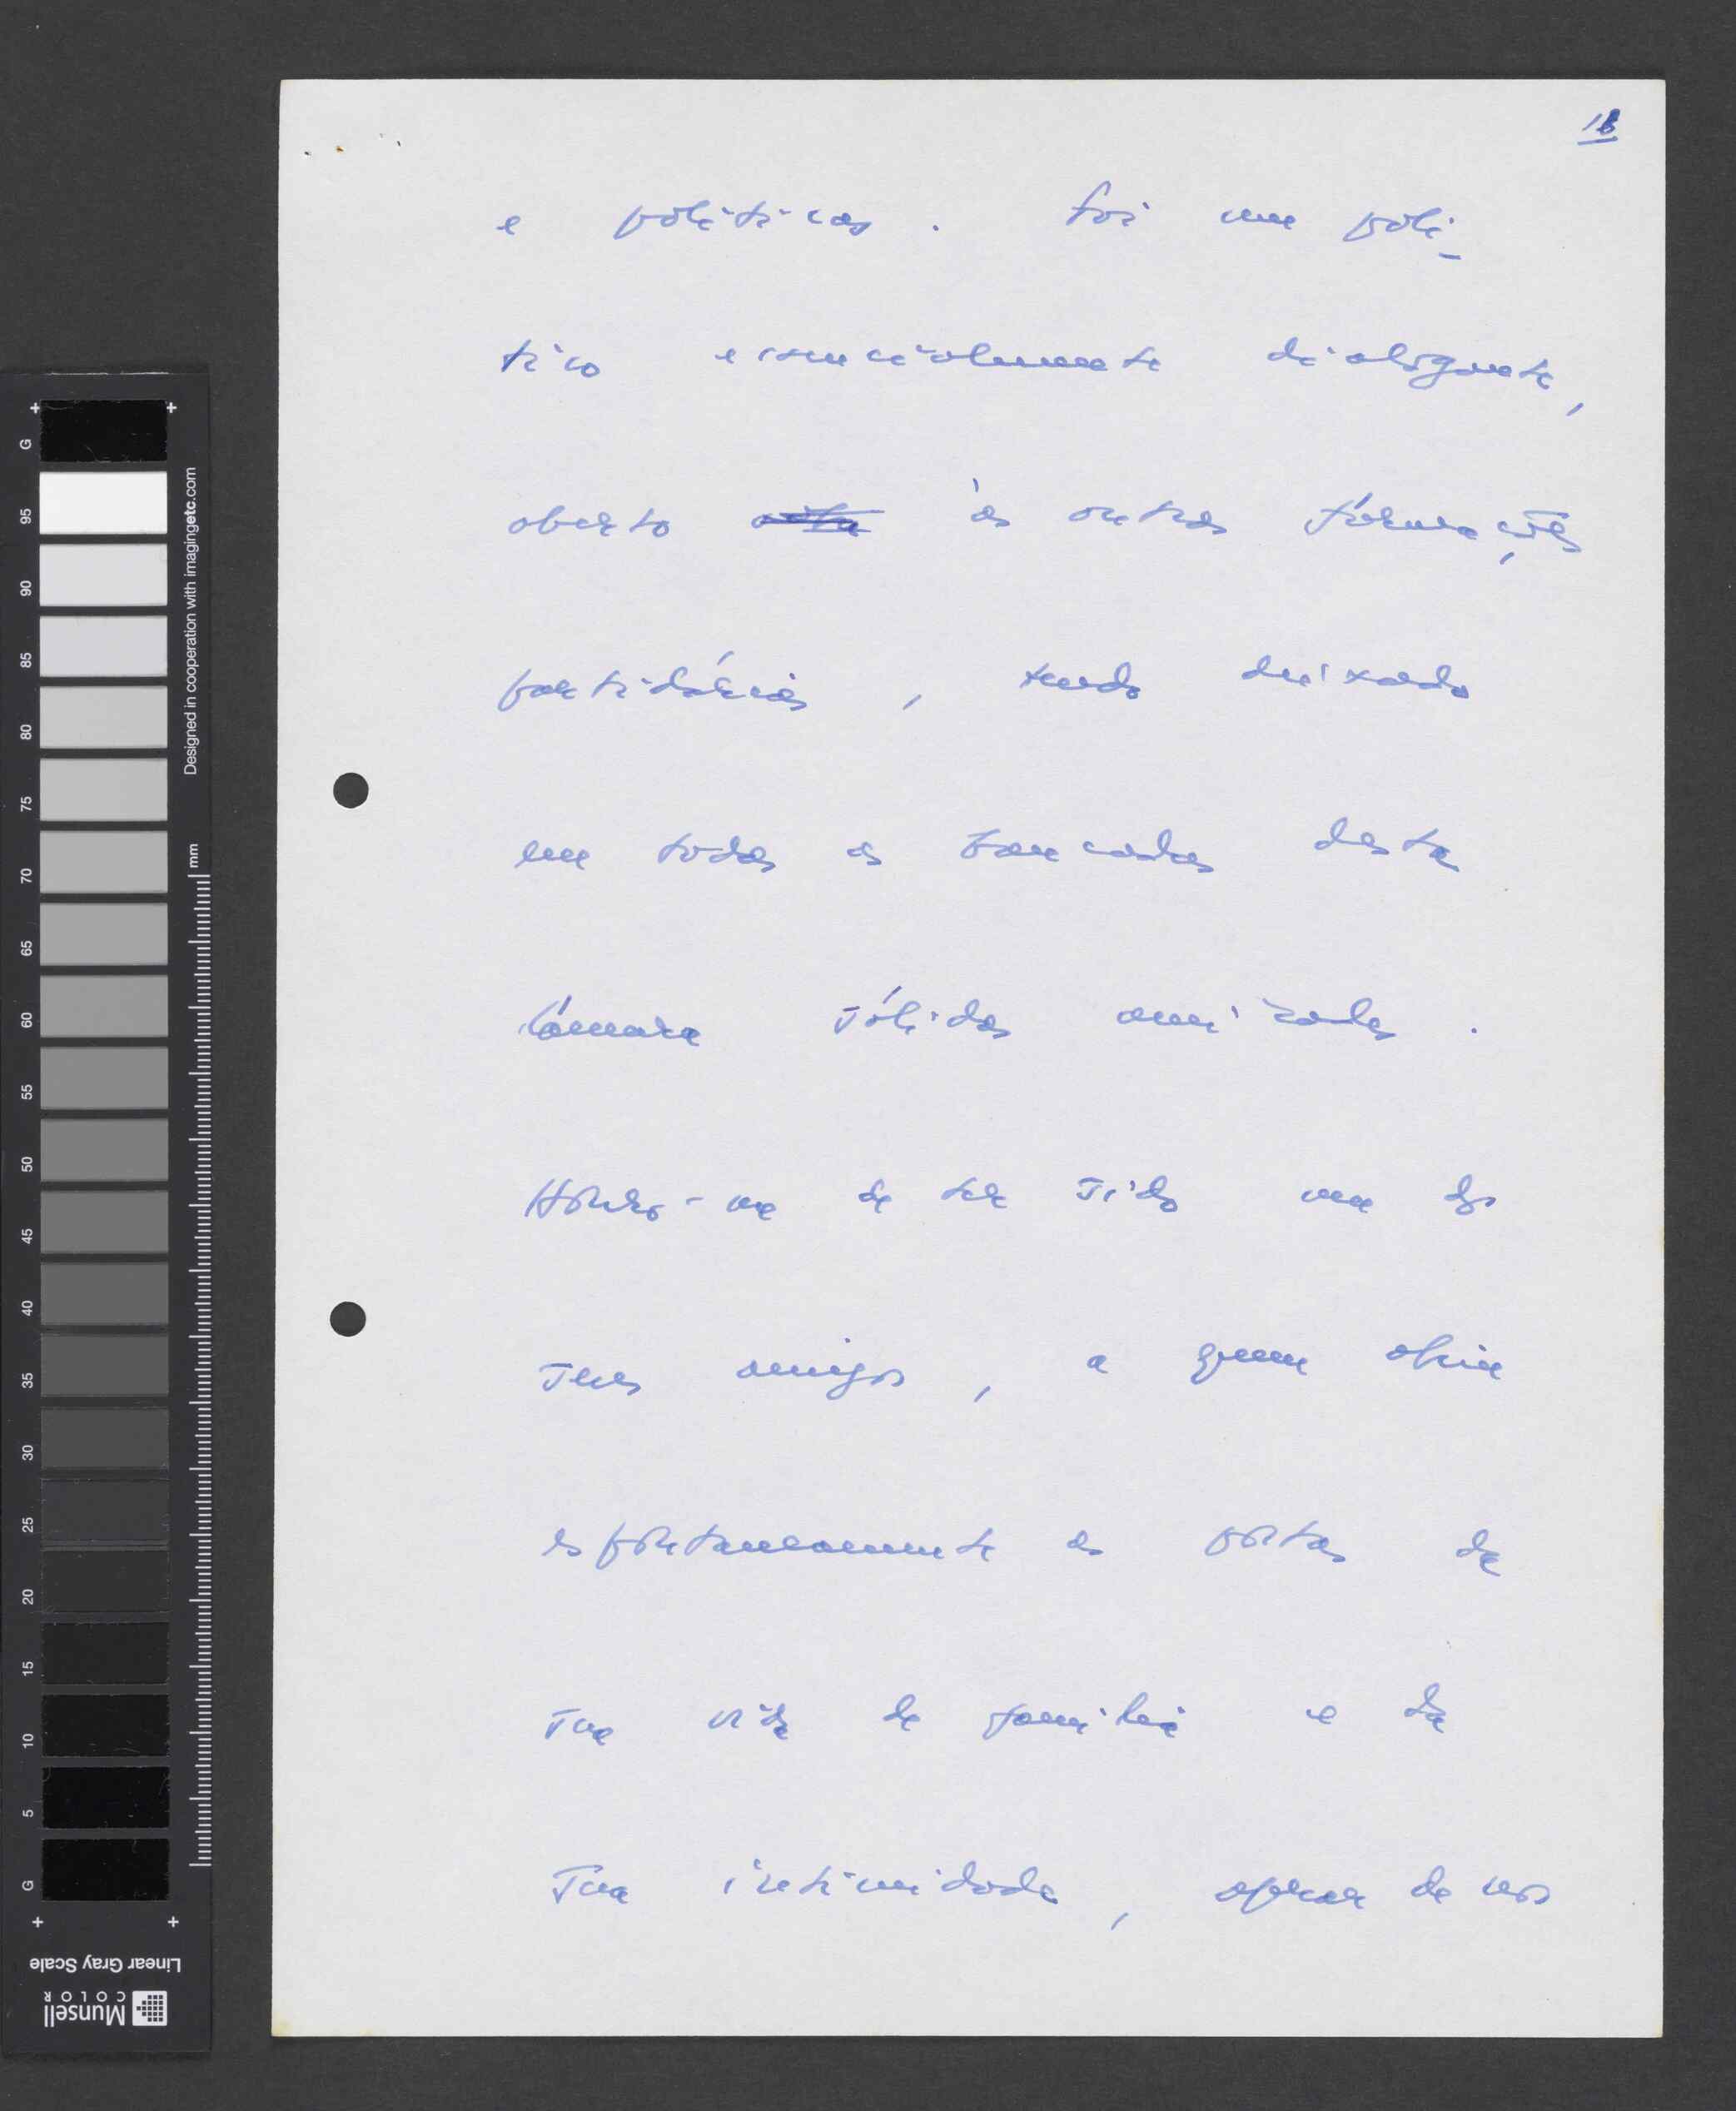 18
e políticas. Foi um polí-
tico essencialmente dialogante,
aberto às outras formações
partidárias, tendo deixado
em todas as bancadas desta
Câmara sólidas amizades.
Honro-me de ter sido um dos
seus amigos, a quem abriu
espontaneamente as portas da
sua vida de família e da
sua intimidade, apesar de nos
G
95
90
85
80
75
70
65
60
55
50
45
40
35
30
25
20
15
10
5
G
Designed in cooperation with imagingetc.com
mm
Linear Gray Scale
Munsell
COLOR